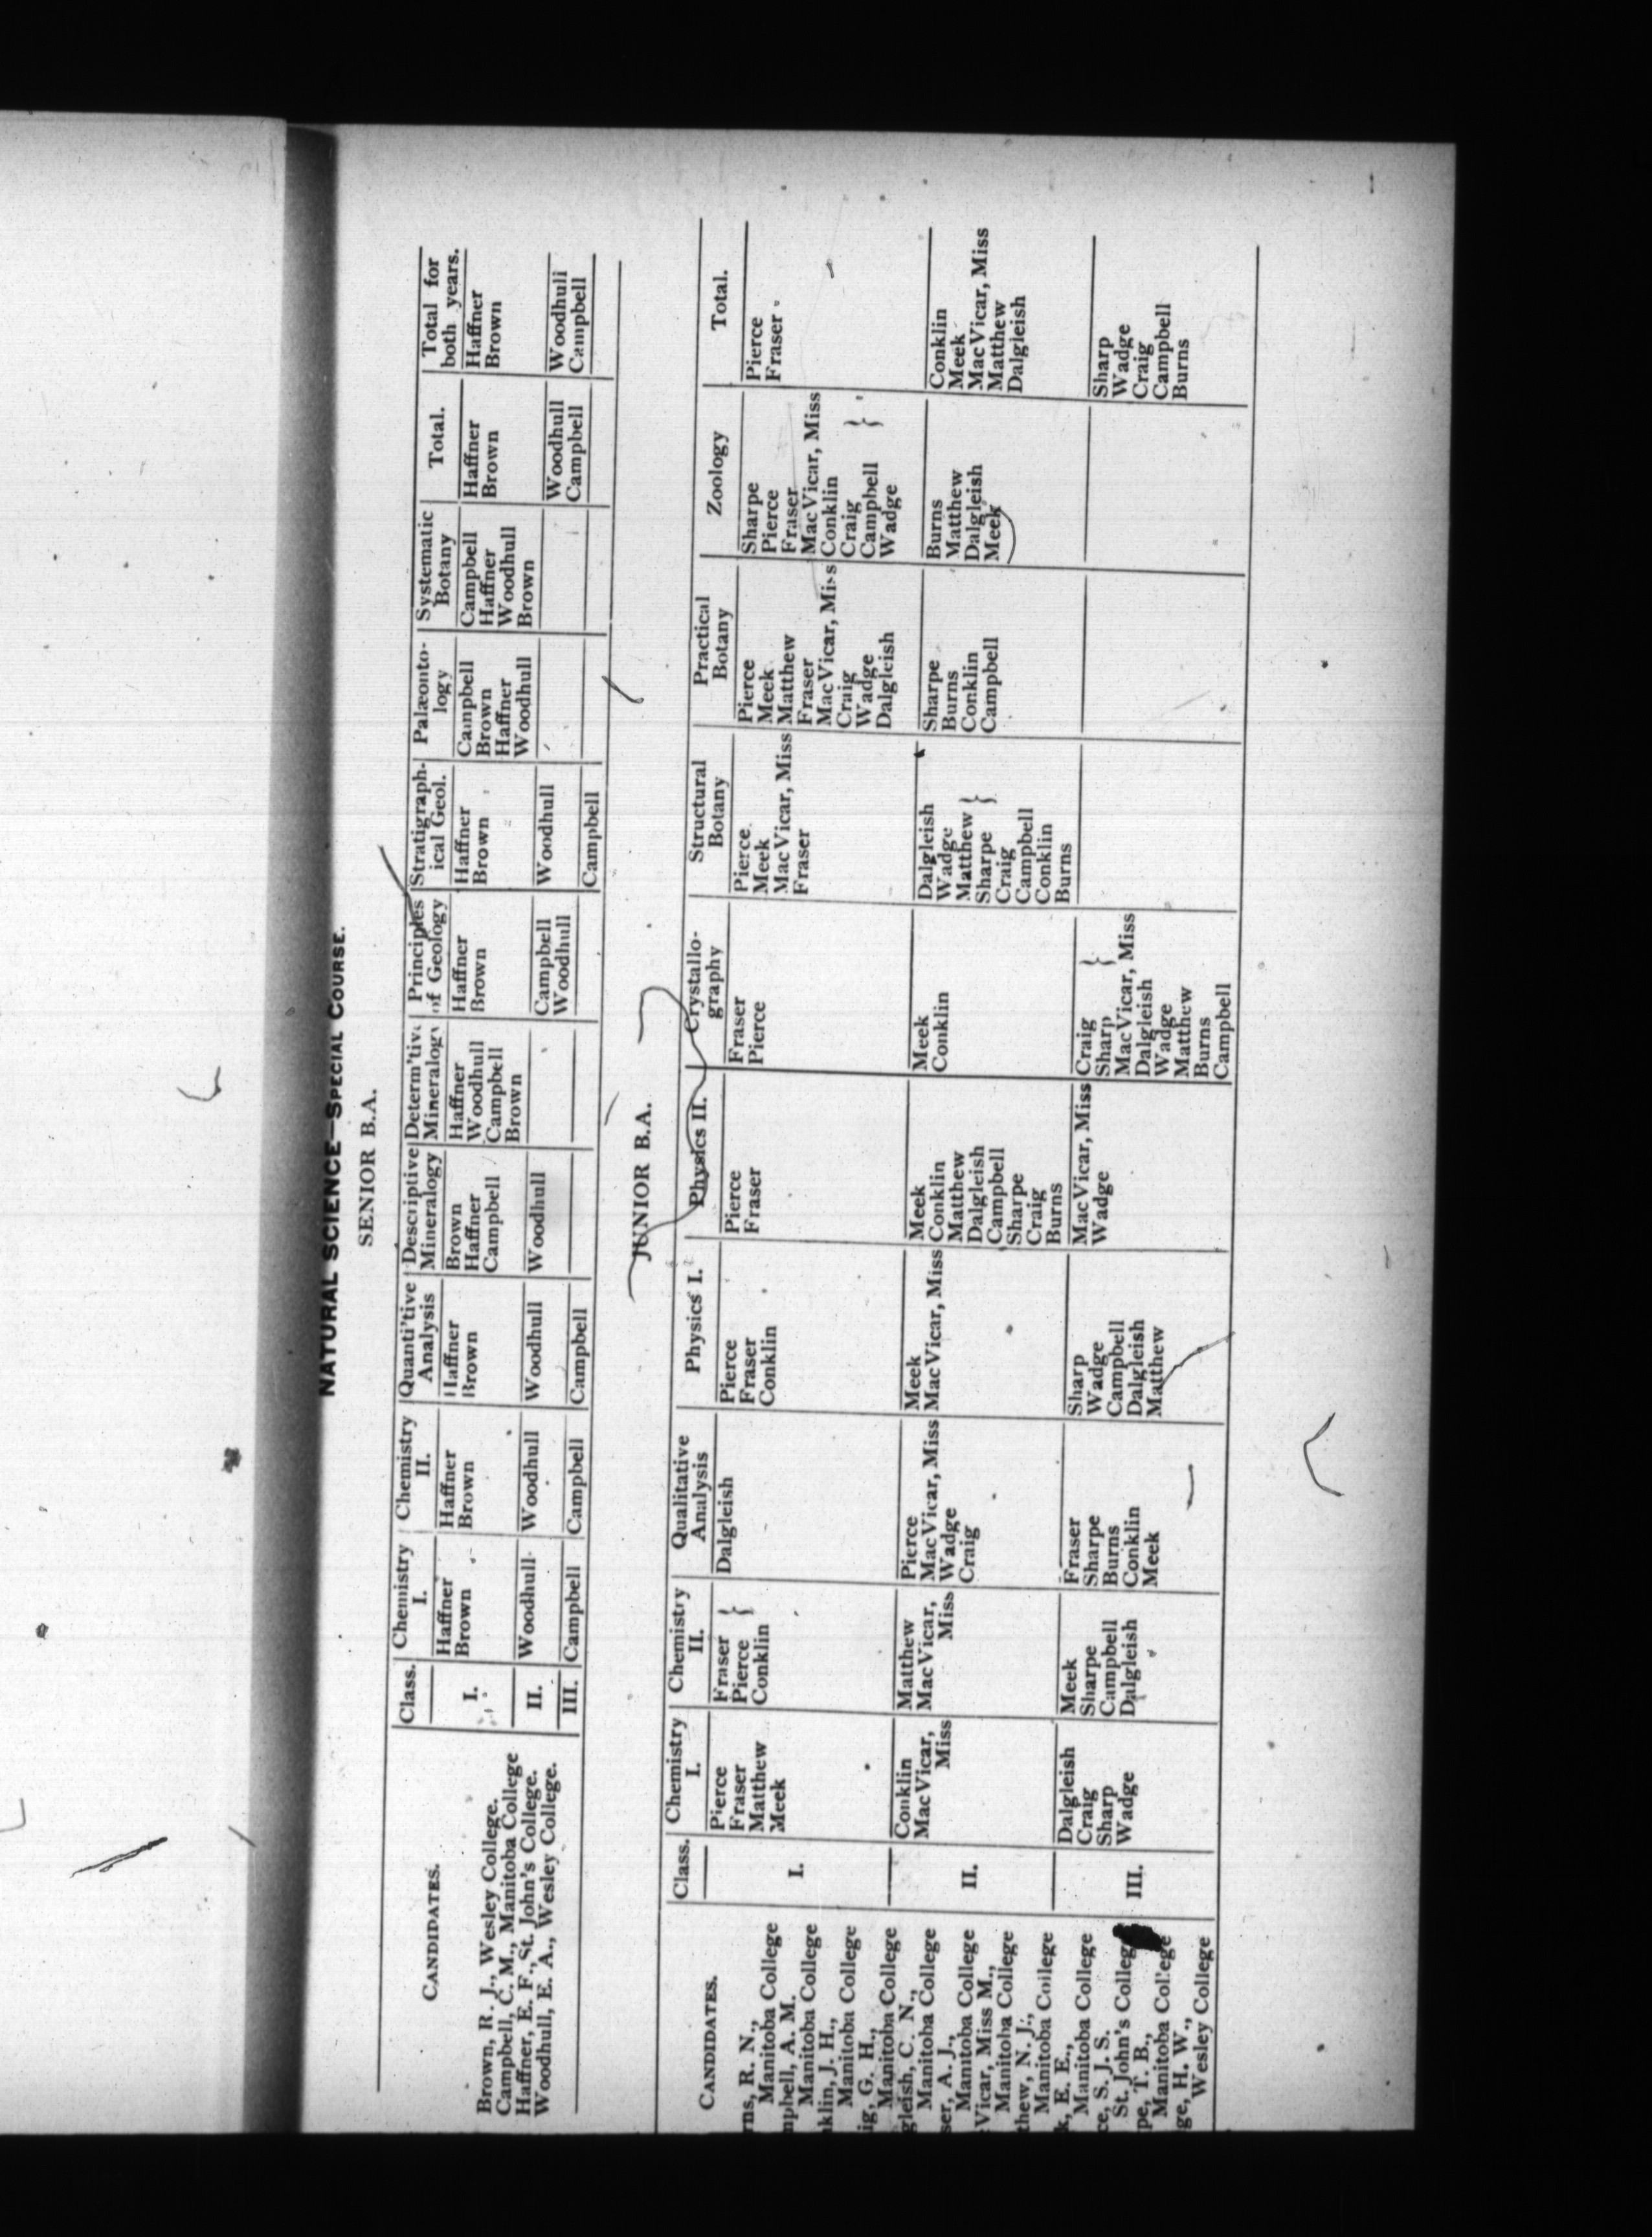 NATURAL SCIENCE—SPECIAL COURSE.
SENIOR B.A.
CANDIDATES.
Brown, R. J., Wesley College.
Campbell, C. M., Manitoba College
Haffner, E. F., St. John's College.
Woodhull, E. A., Wesley College.
Class.
I.
II.
III.
Chemistry
I.
Haffner
Brown
Woodhull
Campbell
Chemistry
II.
Haffner
Brown
Woodhull
Campbell
Quanti'tive
Analysis
Haffner
Brown
Woodhull
Campbell
Descriptive
Mineralogy
Brown
Haffner
Campbell
Woodhull
Determ'tive
Mineralogy
Haffner
Woodhull
Campbell
Brown
Principles
of Geology
Haffner
Brown
Campbell
Woodhull
Stratigraph-
ical Geol.
Haffner
Brown
Woodhull
Campbell
Palæonto-
logy
Campbell
Brown
Haffner
Woodhull
Systematic
Botany
Campbell
Haffner
Woodhull
Brown
Total.
Haffner
Brown
Woodhull
Campbell
Total for
both years.
Haffner
Brown
Woodhull
Campbell
JUNIOR B.A.
CANDIDATES.
rns, R. N.,
Manitoba College
mpbell, A. M.
Manitoba College
nklin, J. H.,
Manitoba College
ig, G. H.,
Manitoba College
gleish, C. N.,
Manitoba College
ser, A. J.,
Manitoba College
Vicar, Miss M.,
Manitoba College
thew, N. J.,
Manitoba College
k, E. E.,
Manitoba College
ce, S. J. S.
St. John's College
pe, T. B.,
Manitoba College
ge, H. W.,
Wesley College
Class.
I.
II.
III.
Chemistry
I.
Pierce
Fraser
Matthew
Meek
Conklin
MacVicar,
Miss
Dalgleish
Craig
Sharp
Wadge
Chemistry
II.
Fraser }
Pierce
Conklin
Matthew
MacVicar,
Miss
Meek
Sharpe
Campbell
Dalgleish
Qualitative
Analysis
Dalgleish
Pierce
MacVicar, Miss
Wadge
Craig
Fraser
Sharpe
Burns
Conklin
Meek
Physics I.
Pierce
Fraser
Conklin
Meek
MacVicar, Miss
Sharp
Wadge
Campbell
Dalgleish
Matthew
Physics II.
Pierce
Fraser
Meek
Conklin
Matthew
Dalgleish
Campbell
Sharpe
Craig
Burns
MacVicar, Miss
Wadge
Crystallo-
graphy
Fraser
Pierce
Meek
Conklin
Craig }
Sharp
MacVicar, Miss
Dalgleish
Wadge
Matthew
Burns
Campbell
Structural
Botany
Pierce
Meek
MacVicar, Miss
Fraser
Dalgleish
Wadge
Matthew }
Sharpe
Craig
Campbell
Conklin
Burns
Practical
Botany
Pierce
Meek
Matthew
Fraser
MacVicar, Miss
Craig
Wadge
Dalgleish
Sharpe
Burns
Conklin
Campbell
Zoology
Sharpe
Pierce
Fraser
MacVicar, Miss
Conklin
Craig
Campbell }
Wadge
Burns
Matthew
Dalgleish
Meek
Total.
Pierce
Fraser
Conklin
Meek
MacVicar, Miss
Matthew
Dalgleish
Sharp
Wadge
Craig
Campbell
Burns